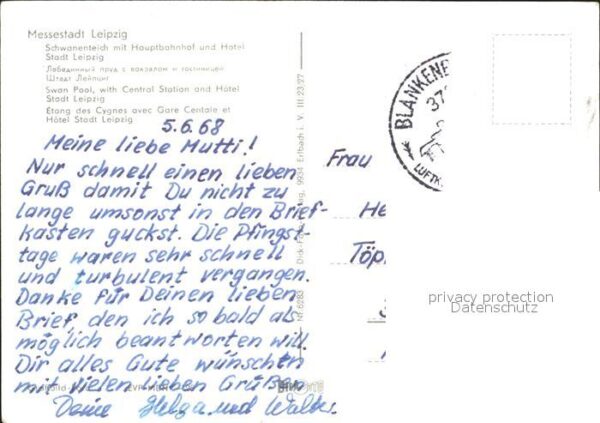 Messestadt Leipzig
Schwanenteich mit Hauptbahnhof und Hotel
Stadt Leipzig
Лебединный пруд с вокзалом и гостиницей
Штадт Лейпциг
Swan Pool, with Central Station and Hotel
Stadt Leipzig
Étang des Cygnes avec Gare Centale et
Hôtel Stadt Leipzig
5.6.68
Meine liebe Mutti!
Nur schnell einen lieben
Gruß damit Du nicht zu
lange umsonst in den Brief-
kasten guckst. Die Pfingst-
tage waren sehr schnell
und turbulent vergangen.
Danke für Deinen lieben
Brief den ich so bald als
möglich beantworten will.
Dir alles Gute wünschen
mit vielen lieben Grüßen
Deine Helga und Walter
9934 Erlbach i. V. III 23 27
BLANKENB
37
LUFTK
Frau
He
Töp
privacy protection
Datenschutz